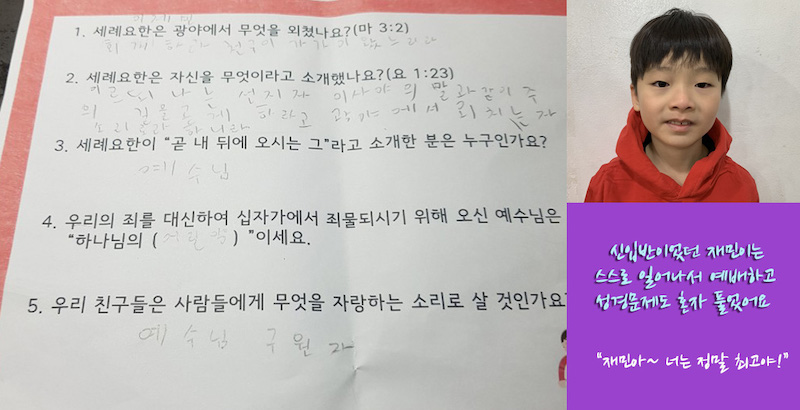 이재민
1. 세례요한은 광야에서 무엇을 외쳤나요?(마 3:2)
회개하라 천국이 가까이 왔느니라
2. 세례요한은 자신을 무엇이라고 소개했나요?(요 1:23)
이르되 나는 선지자 이사야의 말과같이 주
의 길을곧게 하라고 광야에서 외치는자
소리로라 하니라
3. 세례요한이 “곧 내 뒤에 오시는 그”라고 소개한 분은 누구인가요?
예수님
4. 우리의 죄를 대신하여 십자가에서 죄물되시기 위해 오신 예수님은
“하나님의 ( ) ”이세요.
5. 우리 친구들은 사람들에게 무엇을 자랑하는 소리로 살 것인가요?
예수님 구원자
신입반이었던 재민이는
스스로 일어나서 예배하고
성경문제도 혼자 풀었어요
“재민아~ 너는 정말 최고야!”